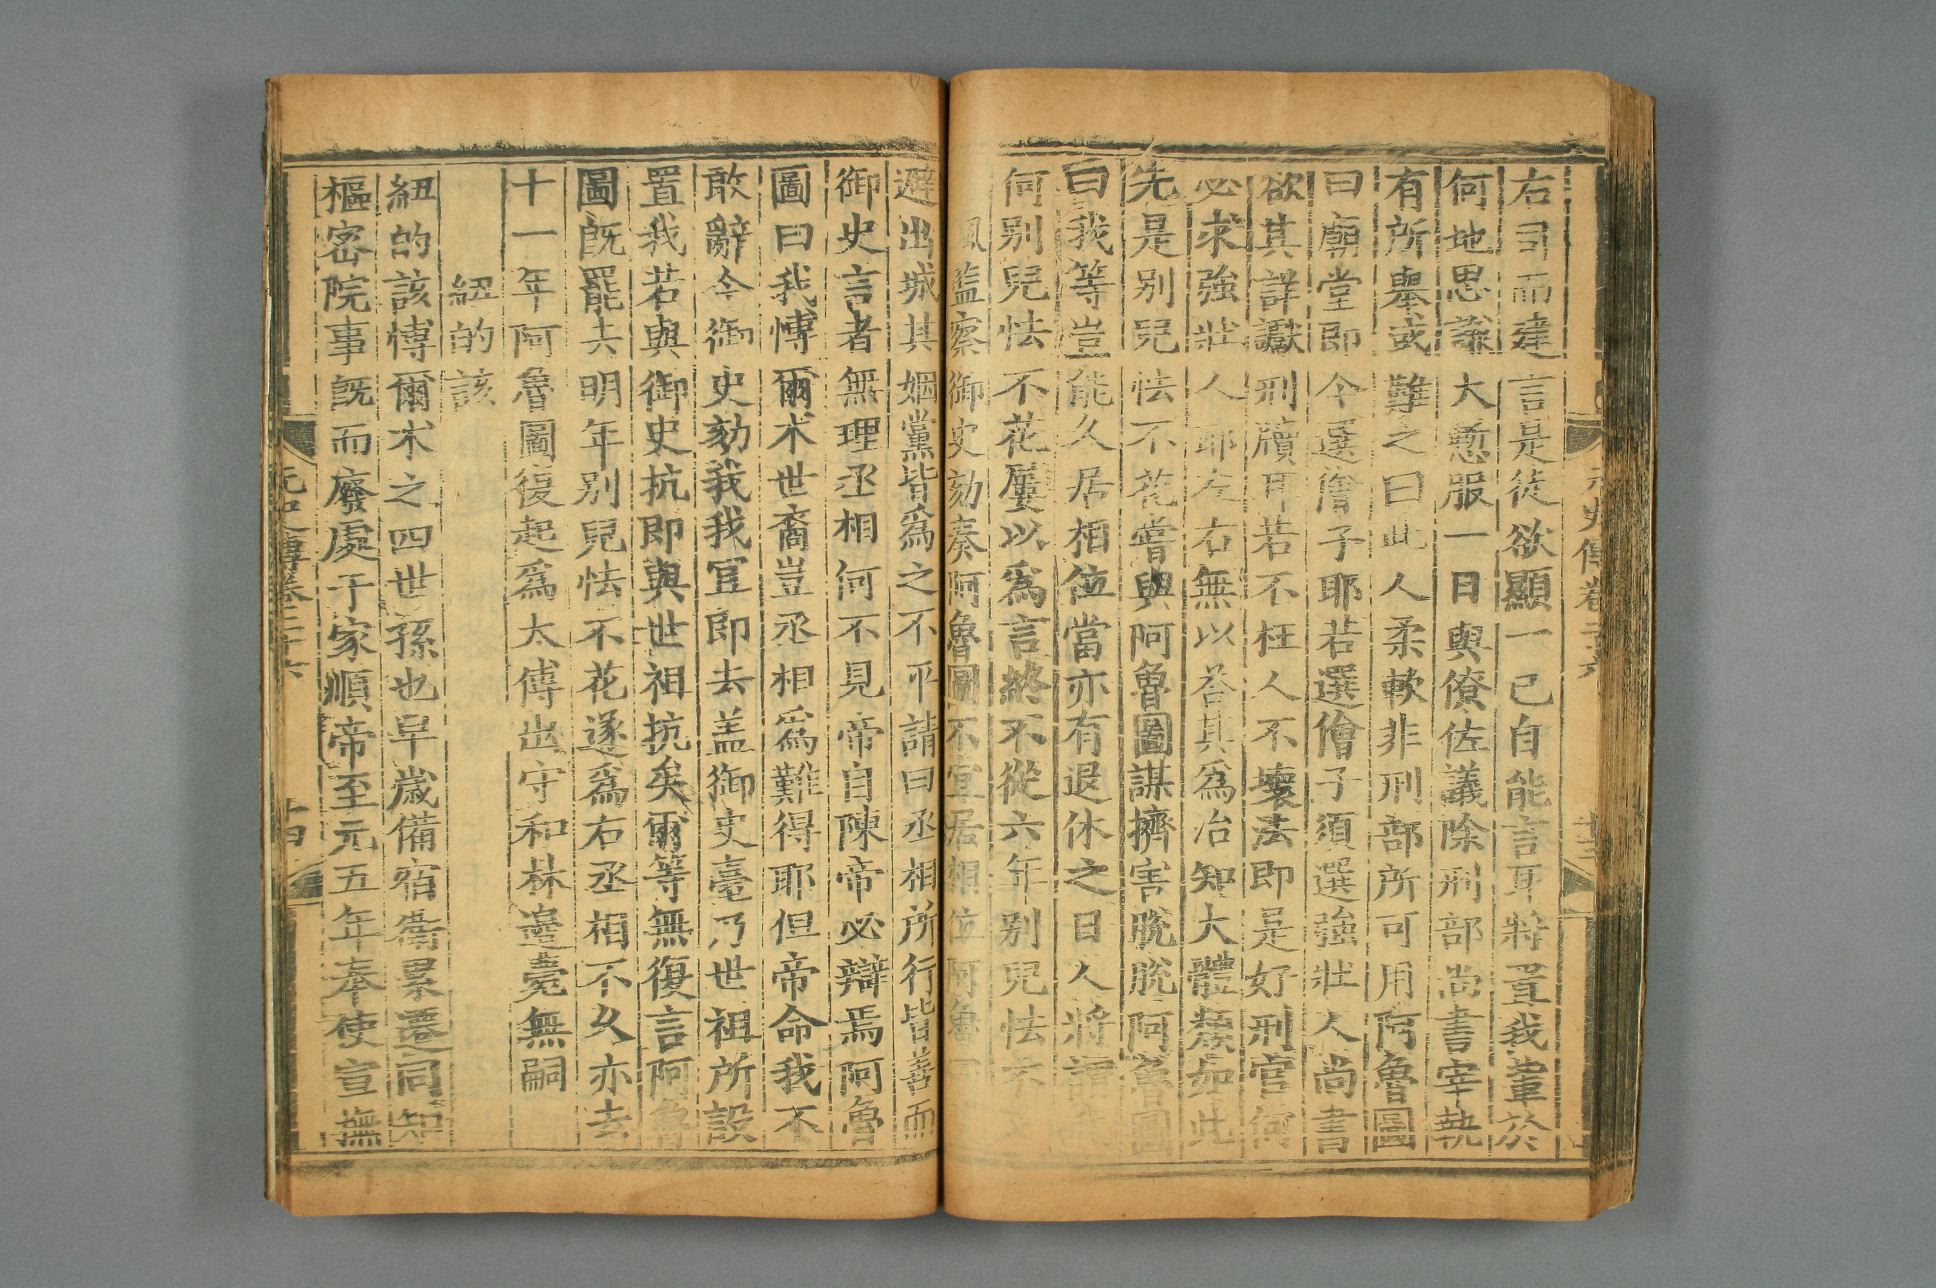 元史傳卷二十六
十三
右司而建言是徒欲顯一己自能言耳將置我輩於
何地思謙大慙服一日與僚佐議除刑部尚書宰執
有所舉或難之曰此人柔軟非刑部所可用阿魯圖
曰廟堂即今選儈子耶若選儈子須選強壯人尚書
欲其詳讞刑牘耳若不枉人不壞法即是好刑官何
必求強壯人耶左右無以荅其爲治知大體類如此
先是别兒怯不花嘗與阿魯圖謀擠害脫脫阿魯圖
曰我等豈能久居相位當亦有退休之日人將謂我
何别兒怯不花屢以爲言終不從六年别兒怯不
風監察御史劾奏阿魯圖不宜居相位阿魯
避出城其姻黨皆爲之不平請曰丞相所行皆善而
御史言者無理丞相何不見帝自陳帝必辯焉阿魯
圖曰我博爾朮世裔豈丞相爲難得耶但帝命我不
敢辭今御史劾我我宜即去盖御史臺乃世祖所設
置我若與御史抗即與世祖抗矣爾等無復言阿魯
圖旣罷去明年别兒怯不花遂爲右丞相不久亦去
十一年阿魯圖復起爲太傅出守和林邊薨無嗣
紐的該
紐的該博爾朮之四世孫也早歲備宿衛累遷同知
樞密院事旣而廢處于家順帝至元五年奉使宣撫
元史傳卷二十六
十四